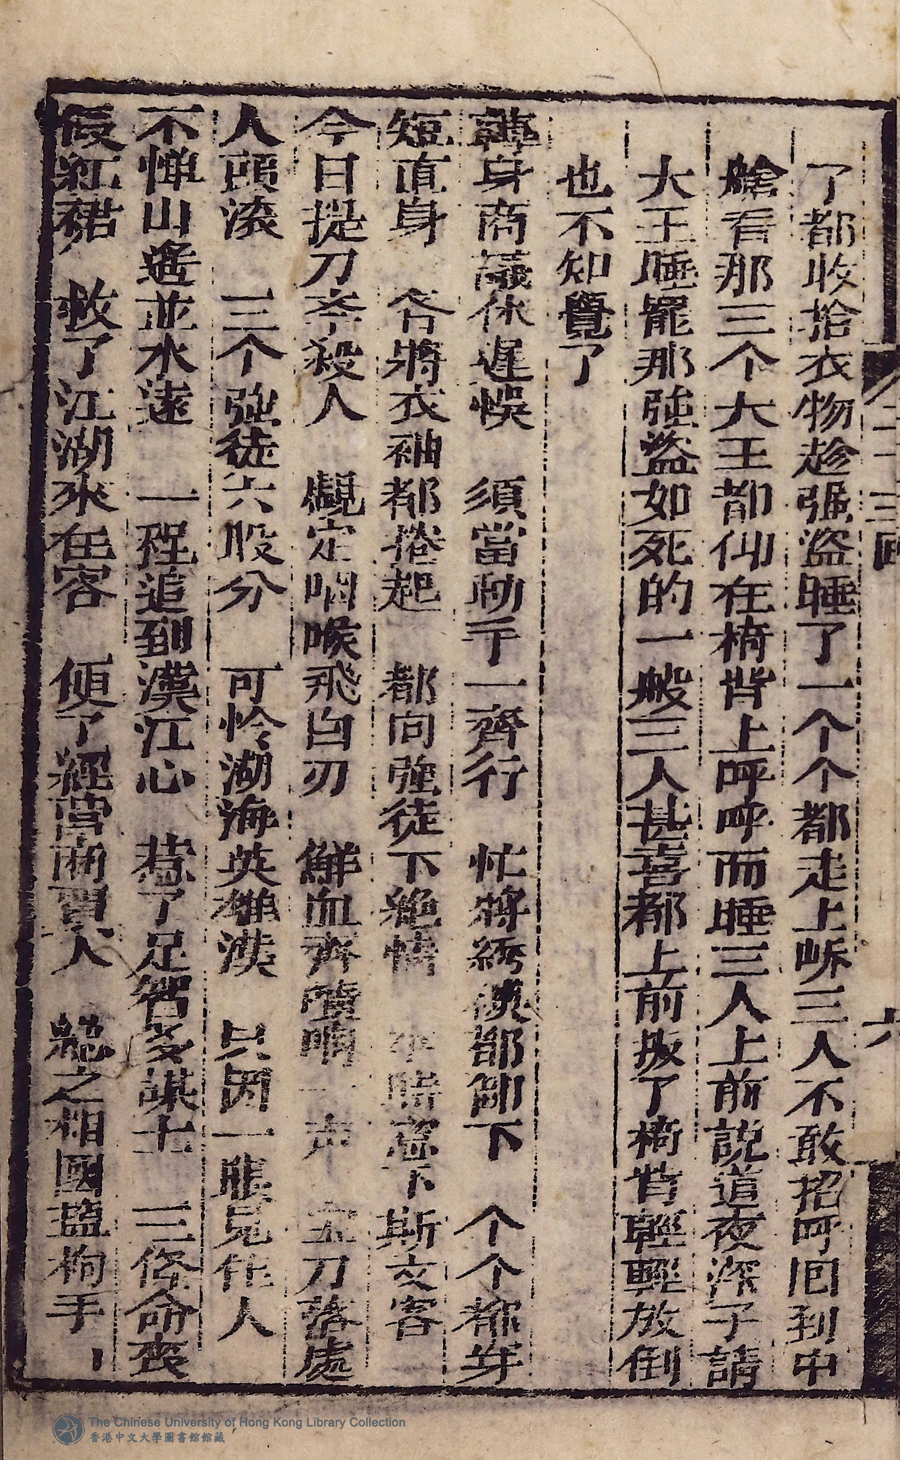 二十三回
六
了都收拾衣物趁强盗睡了一个个都走上岸三人不敢招呼囬到中
艙看那三个大王都仰在椅背上呼呼而睡三人上前説道夜深了請
大王睡罷那強盗如死的一般三人甚喜都上前扳了椅背輕輕放倒
也不知覺了
身商議休遲悞 須當動手一齊行 忙將綉袄都卸下 个个都穿
短直身 各將衣袖都捲起 都向強徒下絶情 下斯文客
今日提刀來殺人 覷定咽喉飛白刃 鮮血齊噴响一声 宝刀落處
人頭滚 三个強徒六股分 可怜湖海英雄漢 只因一賬冤作人
不憚山遙並水遠 一程追到漢江心 惹了足智多謀士 三條命喪
假紅裙 救了江湖來往客 便了經营商賈人 總之相國盐枸手
The Chinese University of Hong Kong Library Collection
香港中文大學圖書館館藏